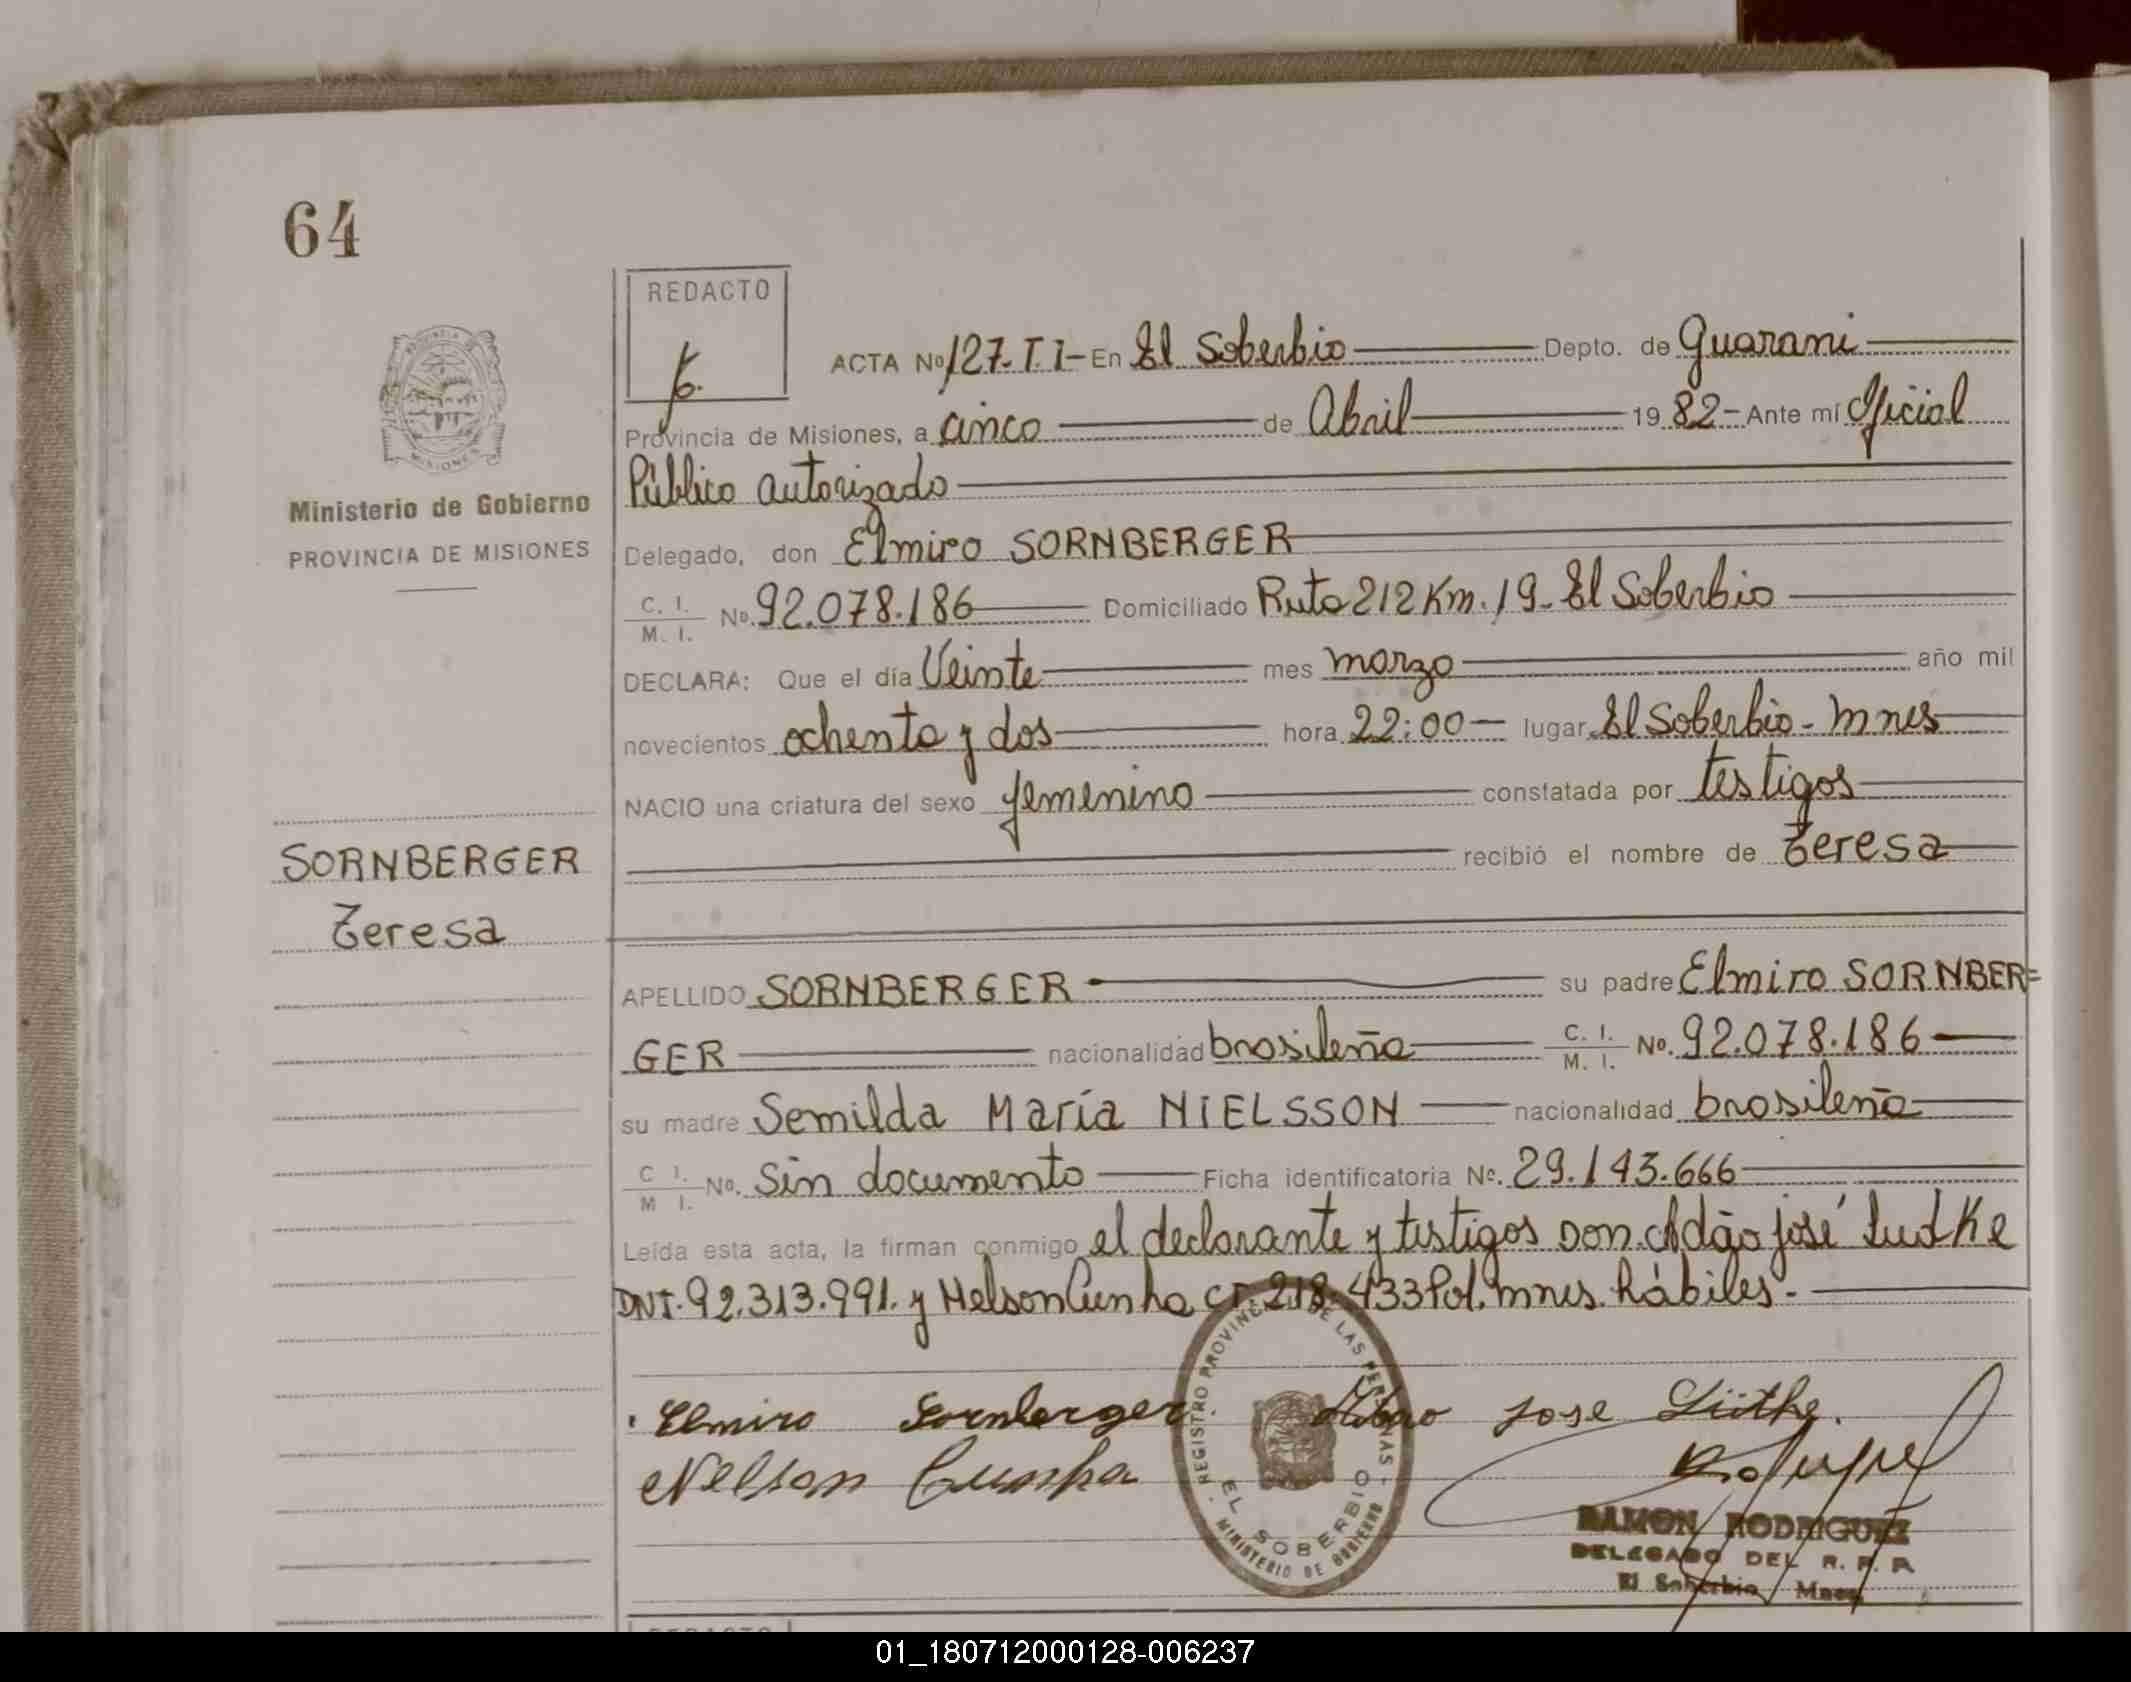 64
REDACTO
ACTA No 127. T. I - En El Soberbio Depto. de Guarani
Provincia de Misiones, a cinco de Abril 19 82 - Ante mí Oficial
Público autorizado
Ministerio de Gobierno
PROVINCIA DE MISIONES
Delegado, don Elmiro SORNBERGER
C. I.
M. I. No. 92.078.186 Domiciliado Ruta 212 Km. 19 - El Soberbio
DECLARA: Que el día Veinte mes marzo año mil
novecientos ochenta y dos hora 22:00 - lugar El Soberbio - Mnes
NACIO una criatura del sexo femenino constatada por testigos
recibió el nombre de Teresa
SORNBERGER
Teresa
APELLIDO SORNBERGER su padre Elmiro SORNBER=
GER nacionalidad brasileña C. I.
M. I. No. 92.078.186
su madre Semilda María NIELSSON nacionalidad brasileña
C I.
M I. No. Sin documento Ficha identificatoria No. 29.143.666
Leída esta acta, la firman conmigo el declarante y testigos Don Adão josé Ludke
DNI. 92.313.991. y Nelson Cunha CI. 218.433 Pol. Mnes. hábiles.-
Elmiro Sornberger Adão Jose Lüthe.
Nelson Cunha
REGISTRO PROVINCIAL DE LAS PERSONAS
EL SOBERBIO
MINISTERIO DE GOBIERNO
RAMON RODRIGUEZ
DELEGADO DEL R. P. P.
El Soberbio Mnes
REDACTO
01_180712000128-006237